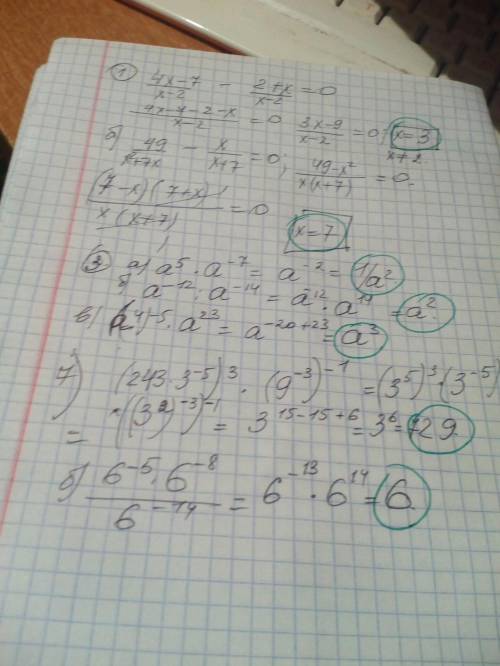 ① (4x-7)/(x-2) - (2+x)/(x-2) = 0
(4x-7-2-x)/(x-2) = 0 (3x-9)/(x-2) = 0; x=3
x≠2
б) 49/(x²+7x) - x/(x+7) = 0; (49-x²)/(x(x+7)) = 0.
((7-x)(7+x))/(x(x+7)) = 0 x=7
③ а) a⁵·a⁻⁷ = a⁻² = 1/a²
б) a⁻¹²:a⁻¹⁴ = a⁻¹²·a¹⁴ = a²
в) (a⁴)⁻⁵·a²³ = a⁻²⁰⁺²³ = a³
7) (243·3⁻⁵)³·(9⁻³)⁻¹ = (3⁵)³·(3⁻⁵)
·((3²)⁻³)⁻¹ = 3¹⁵⁻¹⁵⁺⁶ = 3⁶ = 729
=
б) (6⁻⁵·6⁻⁸)/(6⁻¹⁴) = 6⁻¹³·6¹⁴ = 6